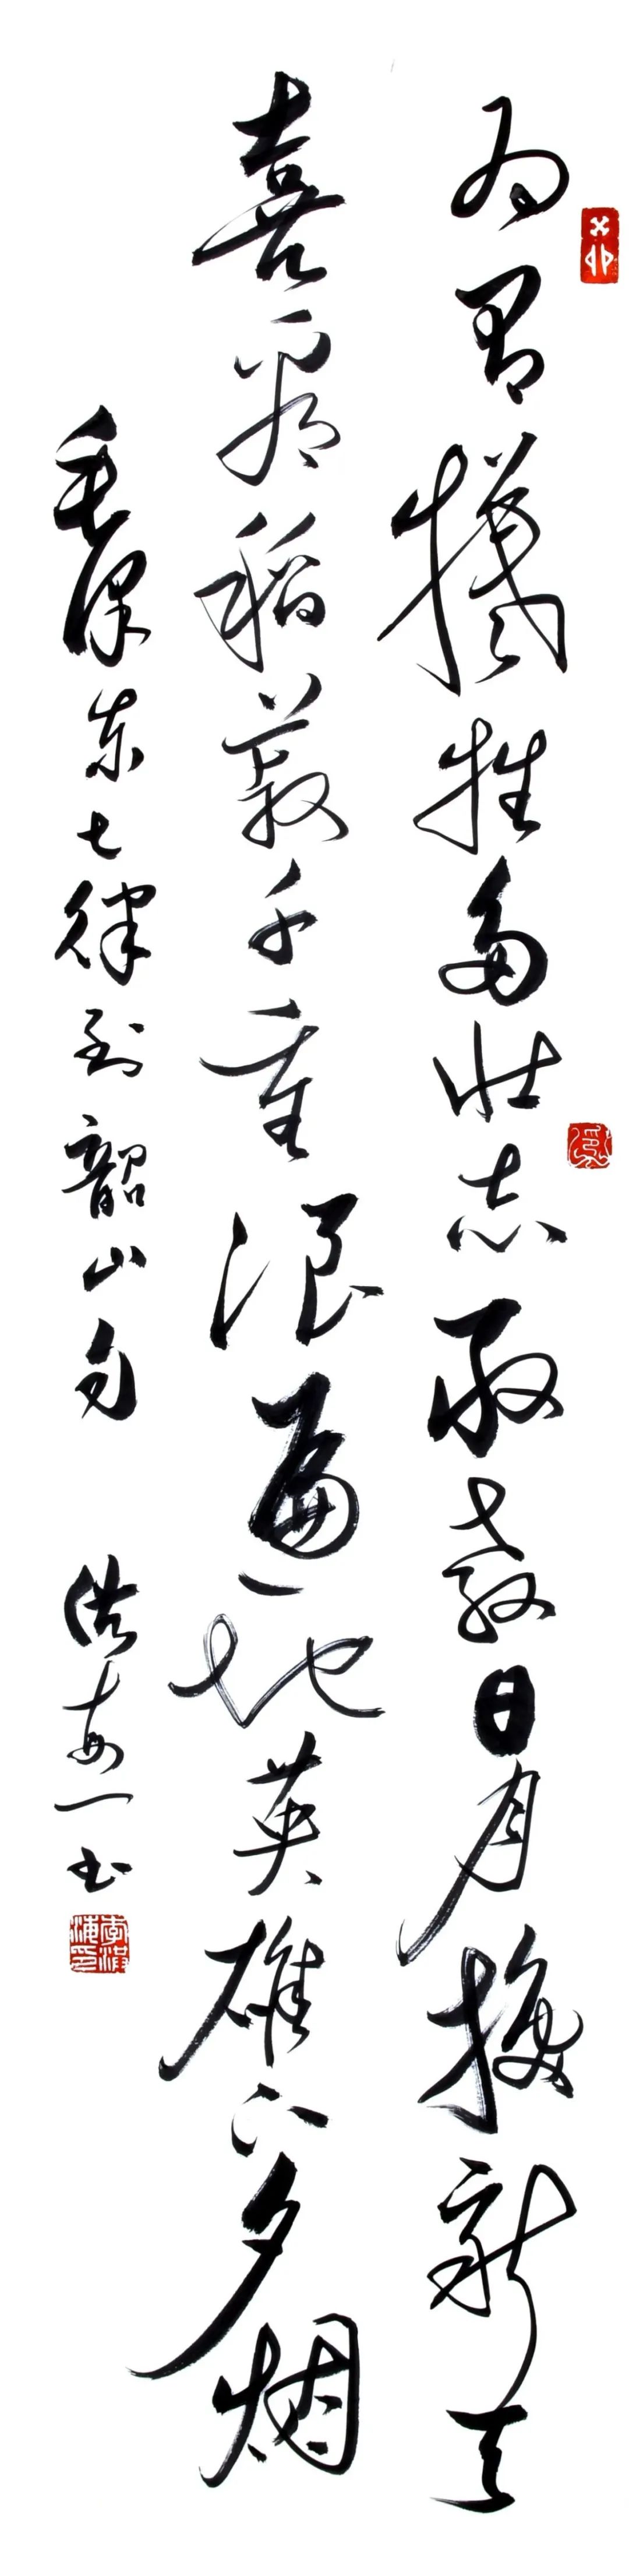 为有犧牲多壮志敢教日月换新天
喜看稻菽千重浪遍地英雄下夕烟
毛泽东七律到韶山句 洪海书
李洪海印